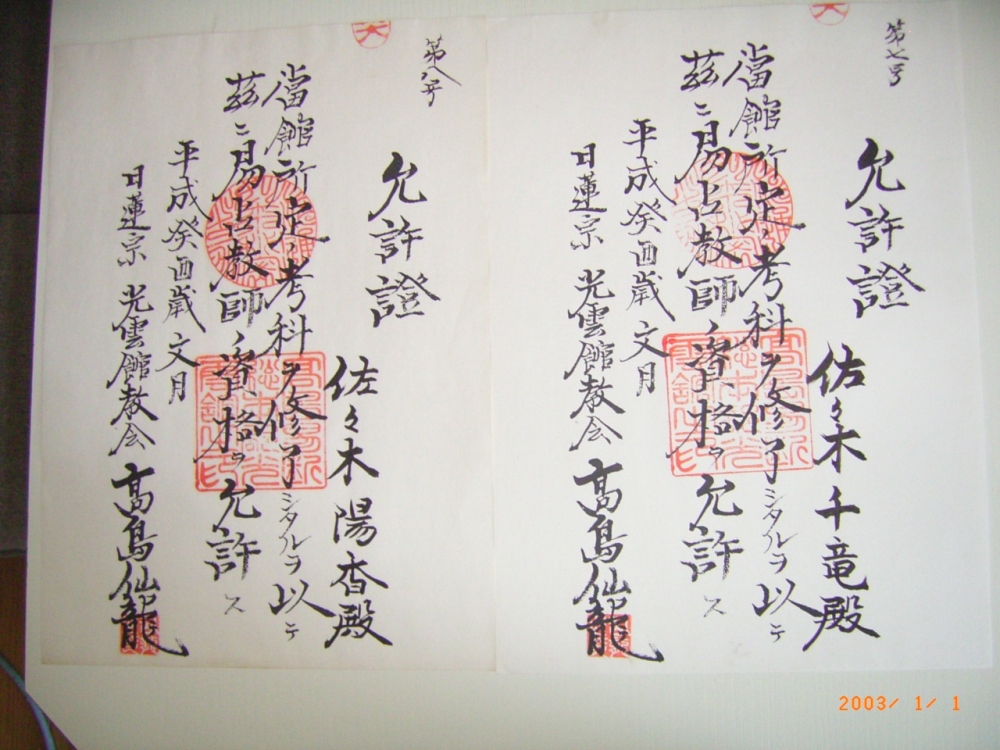 第七号
允許證
佐々木千竜殿
當館所定ノ考科ヲ修了シタルヲ以テ
茲ニ易占教師ノ資格ヲ允許ス
平成癸酉歳文月
日蓮宗 光雲館教会 高島仙龍
第八号
允許證
佐々木陽杳殿
當館所定ノ考科ヲ修了シタルヲ以テ
茲ニ易占教師ノ資格ヲ允許ス
平成癸酉歳文月
日蓮宗 光雲館教会 高島仙龍
2003/ 1/ 1